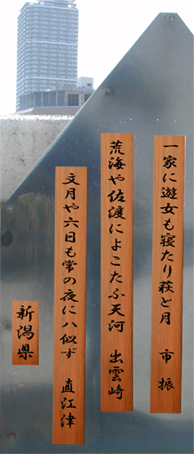 一家に遊女も寝たり萩と月 市振
荒海や佐渡によこたふ天河 出雲崎
文月や六日も常の夜に八似ず 直江津
新潟県